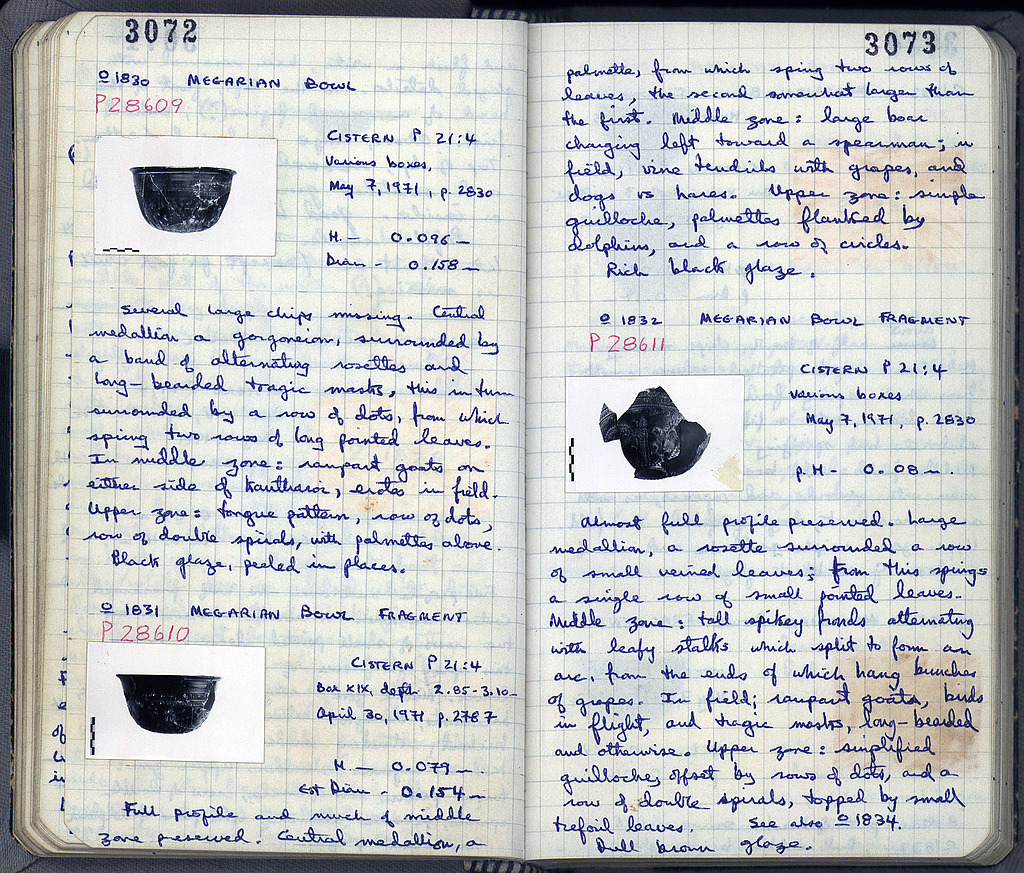 3072
º 1830 MEGARIAN BOWL
P 28609
CISTERN P 21:4
Various boxes,
May 7, 1971, p. 2830
H. — 0.096 m
Diam - 0.158 m
Several large chips missing. Central
medallion a gorgoneion, surrounded by
a band of alternating rosettes and
long-bearded tragic masks, this in turn
surrounded by a row of dots, from which
spring two rows of long pointed leaves.
In middle zone: rampart goats on
either side of kantharoi, erotes in field.
Upper zone: tongue pattern, row of dots,
row of double spirals, with palmettes above.
Black glaze, peeled in places.
º 1831 MEGARIAN BOWL FRAGMENT
P 28610
CISTERN P 21:4
Box XIX, depth 2.85-3.10 m
April 30, 1971 p. 2787
H. — 0.079 m.
est Diam - 0.154 m
Full profile and much of middle
zone preserved. Central medallion, a
3073
palmette, from which spring two rows of
leaves, the second somewhat larger than
the first. Middle zone: large boar
charging left toward a spearman; in
field, vine tendrils with grapes, and
dogs vs hares. Upper zone: simple
guilloche, palmettes flanked by
dolphins, and a row of circles.
Rich black glaze.
º 1832 MEGARIAN BOWL FRAGMENT
P 28611
CISTERN P 21:4
various boxes
May 7, 1971, p. 2830
p. H - 0.08 m.
Almost full profile preserved. Large
medallion, a rosette surrounded a row
of small veined leaves; from this springs
a single row of small pointed leaves.
Middle zone: tall spikey fronds alternating
with leafy stalks which split to form an
arc, from the ends of which hang bunches
of grapes. In field; rampart goats, birds
in flight, and tragic masks, long-bearded
and otherwise. Upper zone: simplified
guilloche, offset by rows of dots, and a
row of double spirals, topped by small
trefoil leaves. See also º 1834.
Dull brown glaze.